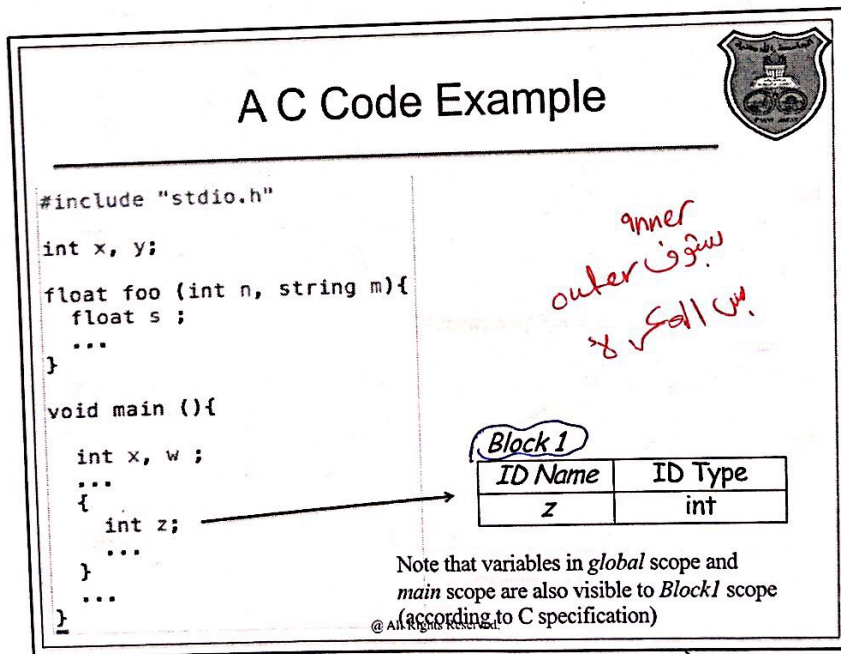 A C Code Example
#include "stdio.h"
int x, y;
float foo (int n, string m){
float s ;
...
}
void main (){
int x, w ;
...
{
int z;
...
}
...
}
inner
بتشوف outer
بس العكس لا
Block 1
ID Name ID Type
z int
Note that variables in global scope and
main scope are also visible to Block1 scope
(according to C specification)
@ All Rights Reserved.